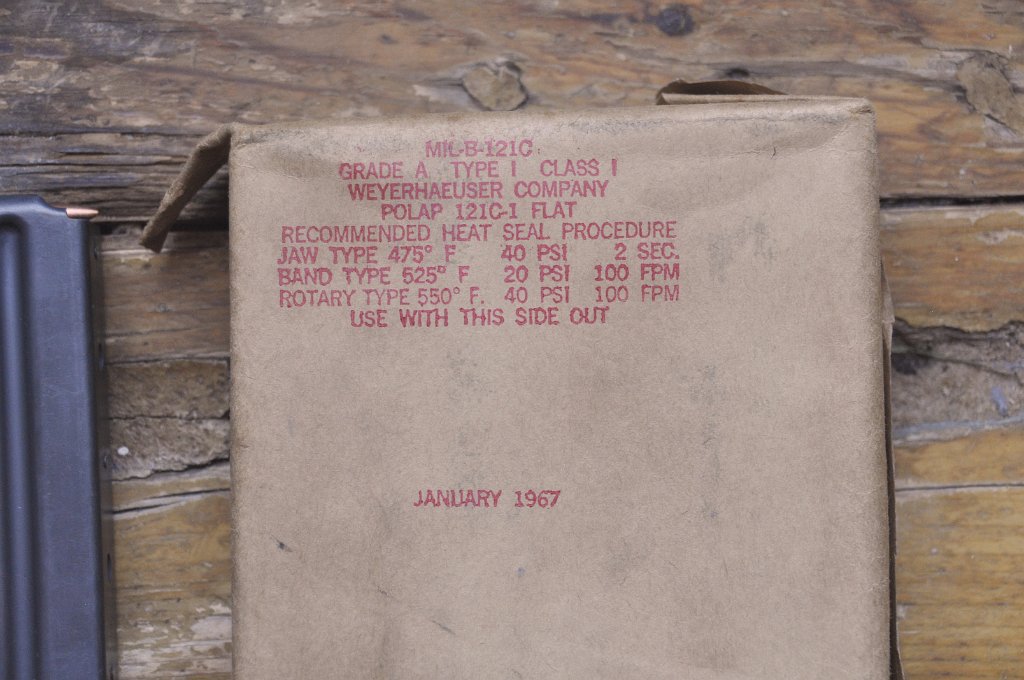 MIL-B-121C
GRADE A TYPE I CLASS I
WEYERHAEUSER COMPANY
POLAP 121C-1 FLAT
RECOMMENDED HEAT SEAL PROCEDURE
JAW TYPE 475° F 40 PSI 2 SEC.
BAND TYPE 525° F 20 PSI 100 FPM
ROTARY TYPE 550° F. 40 PSI 100 FPM
USE WITH THIS SIDE OUT
JANUARY 1967